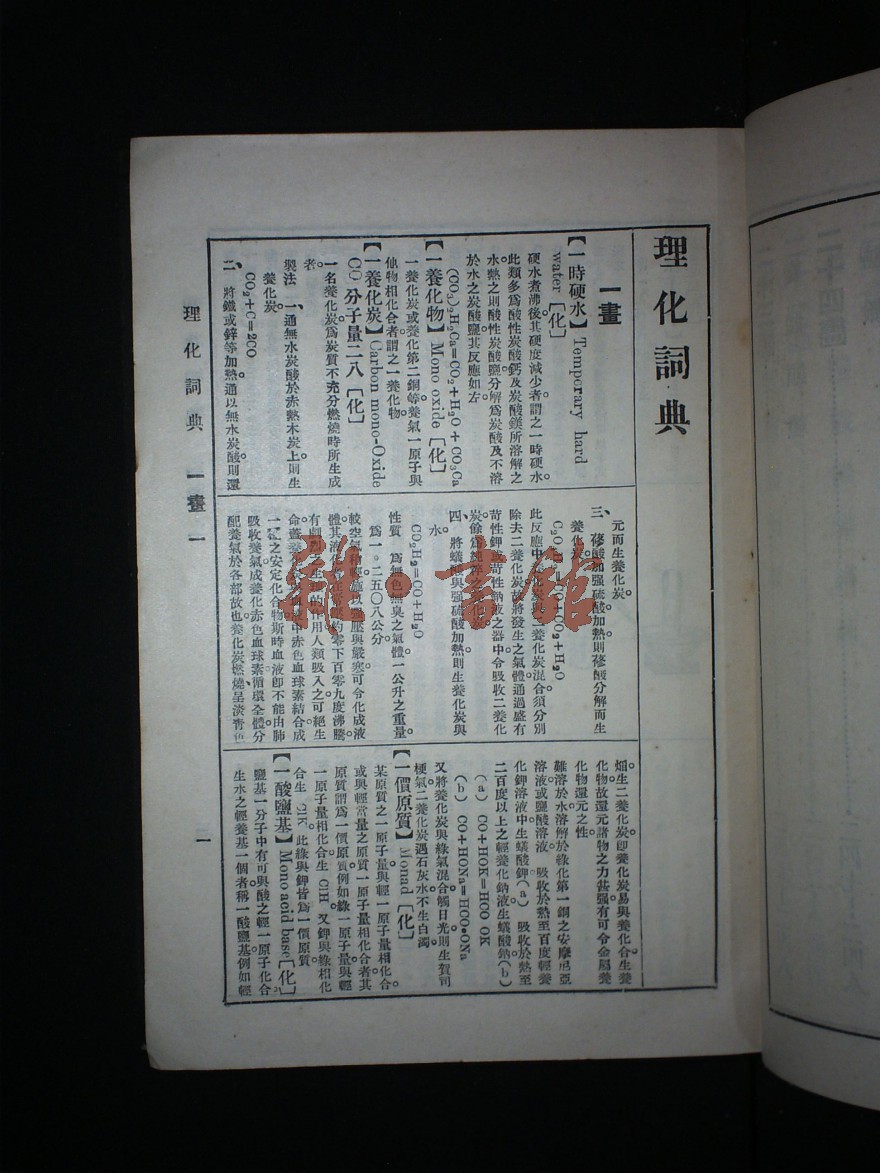 理化詞典
一畫
【一時硬水】Temporary hard
water［化］
硬水煮沸後其硬度減少者謂之一時硬水。
此類多爲酸性炭酸鈣及炭酸鎂所溶解之
水熱之則酸性炭酸鹽分解爲炭酸及不溶
於水之炭酸鹽其反應如左。
(CO₃)₂H₂Ca=CO₂+H₂O+CO₃Ca
【一養化物】Mono oxide［化］
一養化炭或養化第二銅等養氣一原子與
他物相化合者謂之一養化物。
【一養化炭】Carbon mono-Oxide
CO 分子量二八［化］
一名養化炭爲炭質不充分燃燒時所生成
者。
製法 一、通無水炭酸於赤熱木炭上則生
養化炭。
CO₂+C=2CO
二、將鐵或鋅等加熱通以無水炭酸則還
元而生養化炭。
三、蓚酸加强硫酸加熱則蓚酸分解而生
養化炭。
CO+CO₂+H₂O
此反應中養化炭與二養化炭混合須分別
除去二養化炭故將發生之氣體通過盛有
苛性鉀或苛性鈉液之器中令吸收二養化
炭餘爲純粹之養化炭。
四、將蟻酸與强硫酸加熱則生養化炭與
水。
CO₂H₂=CO+H₂O
性質 爲無色無臭之氣體一公升之重量
爲一。二五〇八公分
較空氣稍輕施以强壓與嚴寒可令化成液
體其液化者在常壓約零下百零九度沸騰。
有劇烈之生理的作用人類吸入之可絕生
命蓋養化炭與血液中赤色血球素結合成
一種之安定化合物斯時血液卽不能由肺
吸收養氣成養化赤色血球素循環全體分
配養氣於各部故也養化炭燃燒呈淡靑色
焰生二養化炭卽養化炭易與養化合生養
化物故還元諸物之力甚强有可令金屬養
化物還元之性。
難溶於水溶解於綠化第一銅之安摩尼亞
溶液或鹽酸溶液。 吸收於熱至百度輕養
化鉀溶液中生蟻酸鉀(a) 吸收於熱至
二百度以上之輕養化鈉液生蟻酸鈉(b)
(a) CO+HOK=HCO OK
(b) CO+HONa=HCO•ONa
又將養化炭與綠氣混合觸日光則生賀司
梗氣二養化炭遇石灰水不生白濁。
【一價原質】Monad［化］
某原質之一原子量與輕一原子量相化合
或與輕當量之原質一原子量相化合者其
原質謂爲一價原質例如綠一原子量與輕
一原子量相化合生 ClH, 又鉀與綠相化
合生 ClK, 此綠與鉀皆爲一價原質
【一酸鹽基】Mono acid base［化］
鹽基一分子中有可與酸之輕一原子化合
生水之輕養基一個者稱一酸鹽基例如輕
理化詞典 一畫 一
一
雜·書館